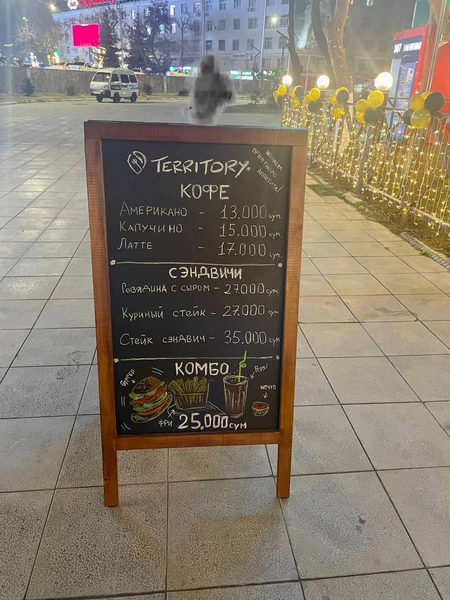 TERRITORY.
ЖЕЛАЕМ
ПРИЯТНОГО
АППЕТИТА!
КОФЕ
АМЕРИКАНО - 13.000 сум.
КАПУЧИНО - 15.000 сум.
ЛАТТЕ - 17.000 сум.
СЭНДВИЧИ
Говядина с сыром - 27.000 сум.
Куриный стейк - 27.000 сум.
Стейк сэндвич - 35.000 сум.
КОМБО
БУРГЕР
ФРИ 25,000 сум